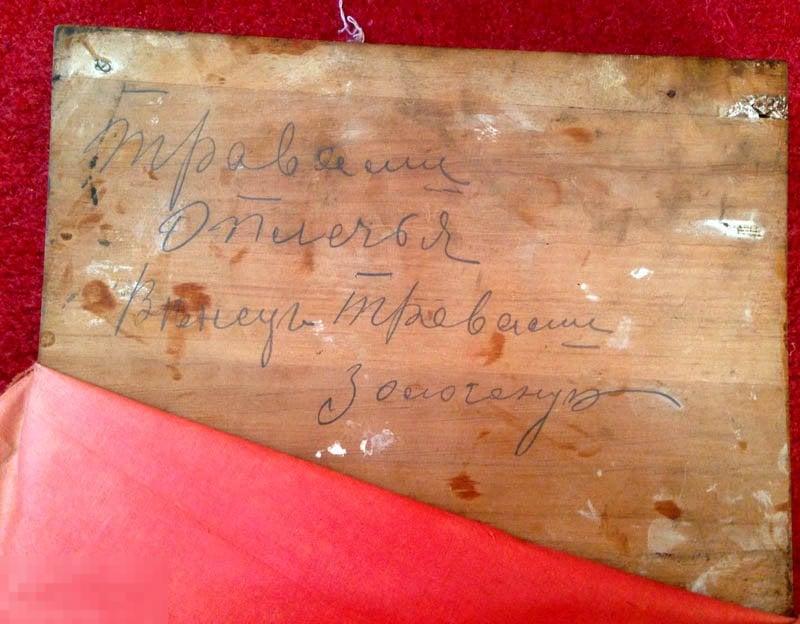 травами
оплечья
Вѣнецъ травами
Золоченую